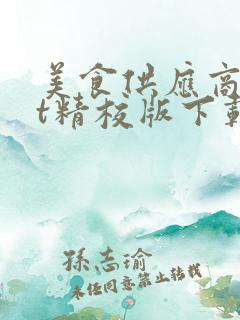 美食供应商
t精校版下载
孫志瑜
未经同意禁止转载